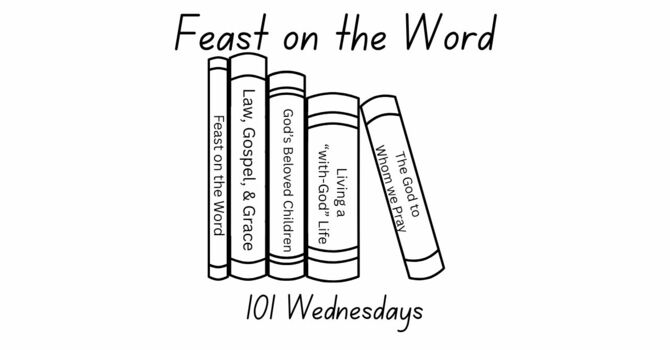 Feast on the Word
Feast on the Word
Law, Gospel, & Grace
God's Beloved Children
Living a
"with-God" Life
The God to
Whom we Pray
101 Wednesdays